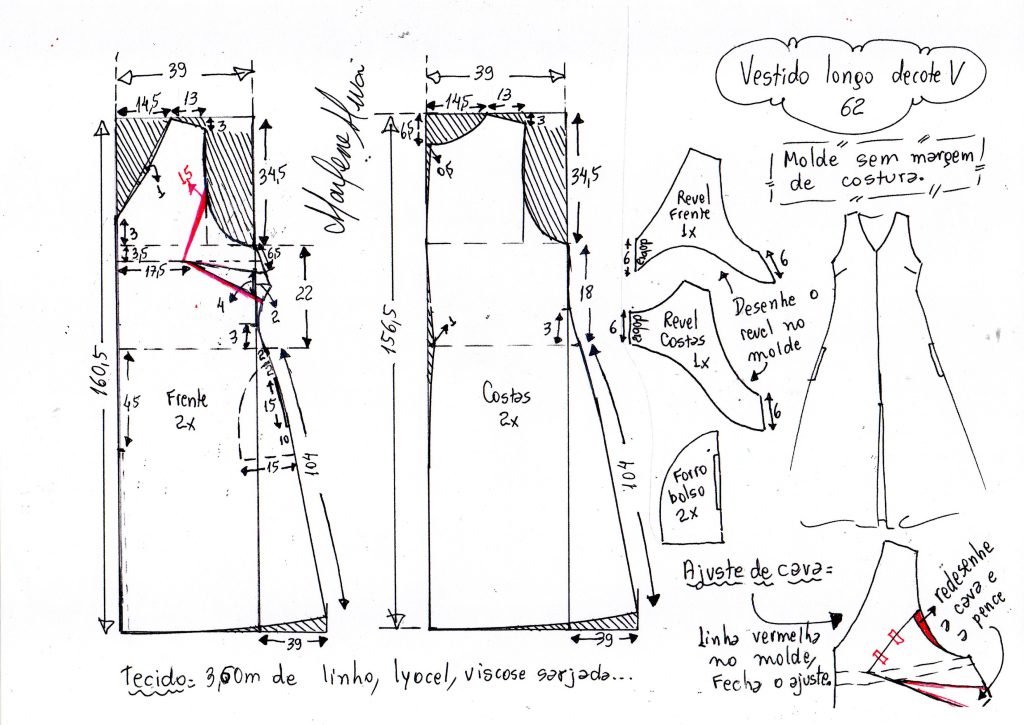 Vestido longo decote V
62
Molde sem margem
de costura.
Marlene Mukai
39
14,5
13
3
34,5
1
1,5
3
3,5
17,5
6,5
4
2
22
3
160,5
45
Frente
2x
15
10
15
104
39
39
14,5
13
3
6,5
0,5
34,5
18
3
1
156,5
Costas
2x
104
39
Revel
Frente
1x
dobra
6
6
Revel
Costas
1x
dobra
6
6
Desenhe o
revel no
molde
Forro
bolso
2x
Ajuste de cava=
Linha vermelha
no molde,
Fecha o ajuste.
redesenhe
a cava e
a pence
Tecido= 3,60m de linho, lyocel, viscose sarjada...